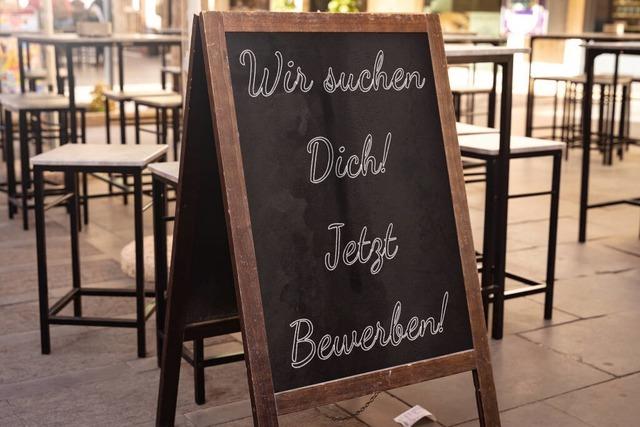 Wir suchen
Dich!
Jetzt
Bewerben!